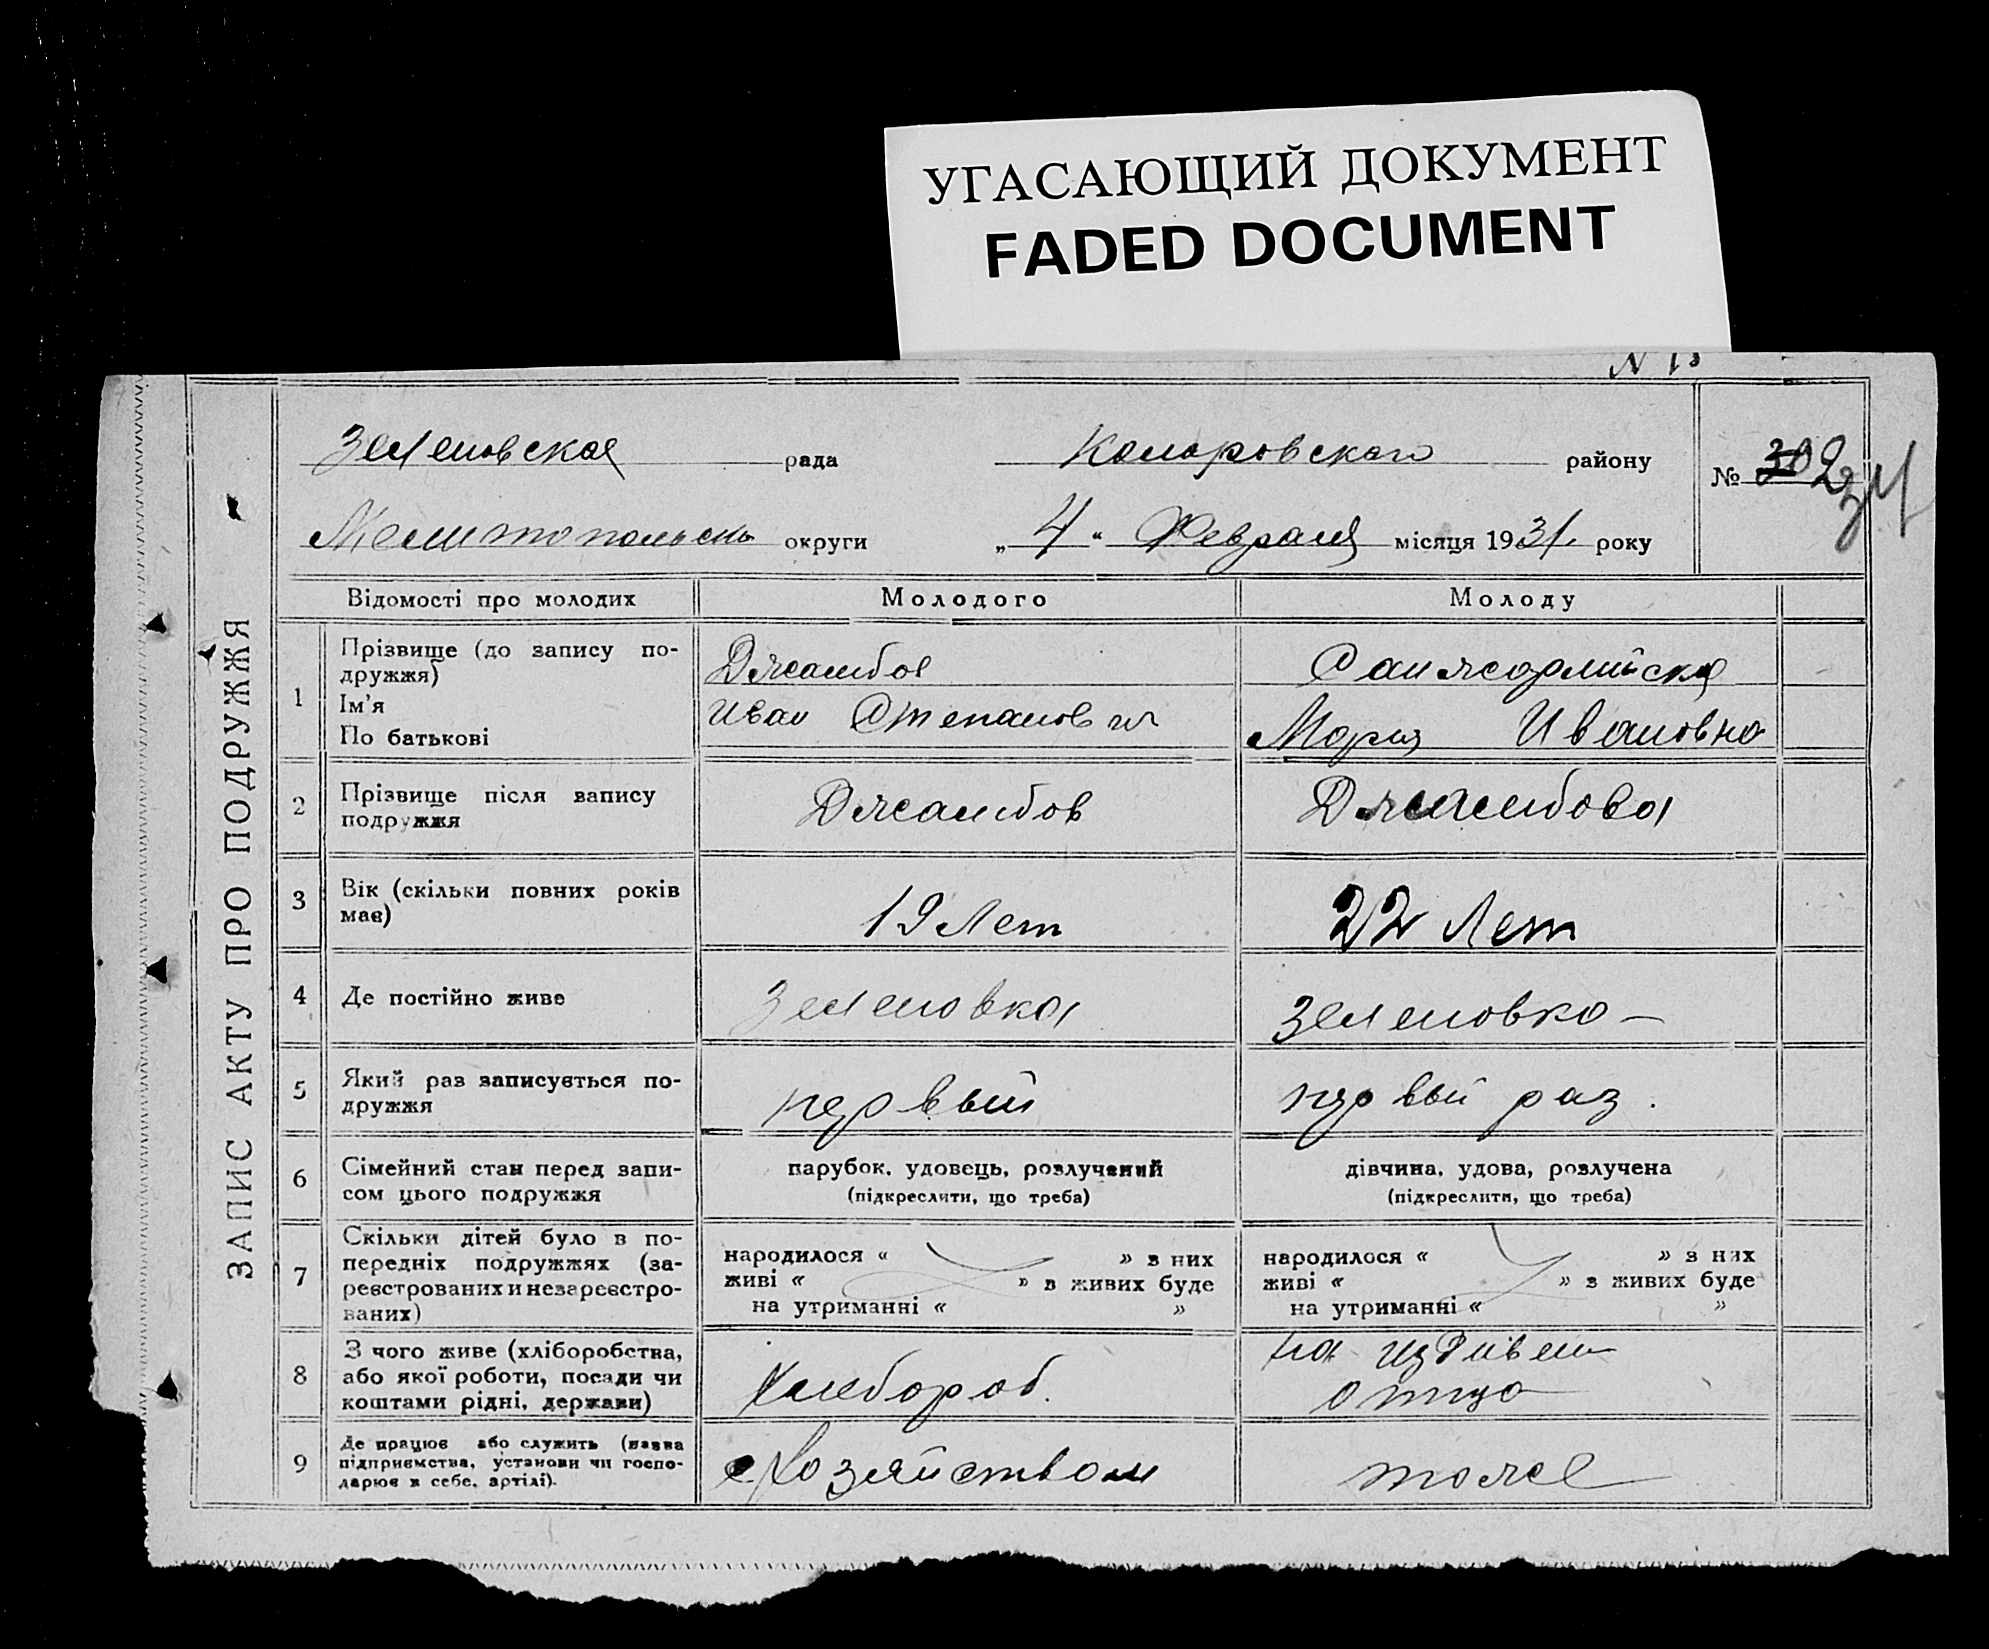 УГАСАЮЩИЙ ДОКУМЕНТ
FADED DOCUMENT
ЗАПИС АКТУ ПРО ПОДРУЖЖЯ
N 13
Зеленовская рада Коларовскаго району
№ 302
34
Мелитопольск округи „4“ Февраля місяця 1931. року
Відомості про молодих Молодого Молоду
1 Прізвище (до запису по-
дружжя)
Ім'я
По батькові
Джамбов
Иван Степанович
Мария Ивановна
2 Прізвище після запису
подружжя
Джамбов Джамбова
3 Вік (скільки повних років
має)
19 лет 22 лет
4 Де постійно живе Зеленовка Зеленовка –
5 Який раз записується по-
дружжя
первый первый раз.
6 Сімейний стан перед запи-
сом цього подружжя
парубок, удовець, розлучений
(підкреслити, що треба)
дівчина, удова, розлучена
(підкреслити, що треба)
7 Скільки дітей було в по-
передніх подружжях (за-
реєстрованих и незареєстро-
ваних)
народилося « » з них
живі « » в живих буде
на утриманні « »
народилося « » з них
живі « » з живих буде
на утриманні « »
8 З чого живе (хліборобства,
або якої роботи, посади чи
коштами рідні, держави)
Хлебороб.
на иждивен
отца
9 Де працює або служить (назва
підприємства, установи чи госпо-
дарює в себе, артілі).
Хозяйством тоже